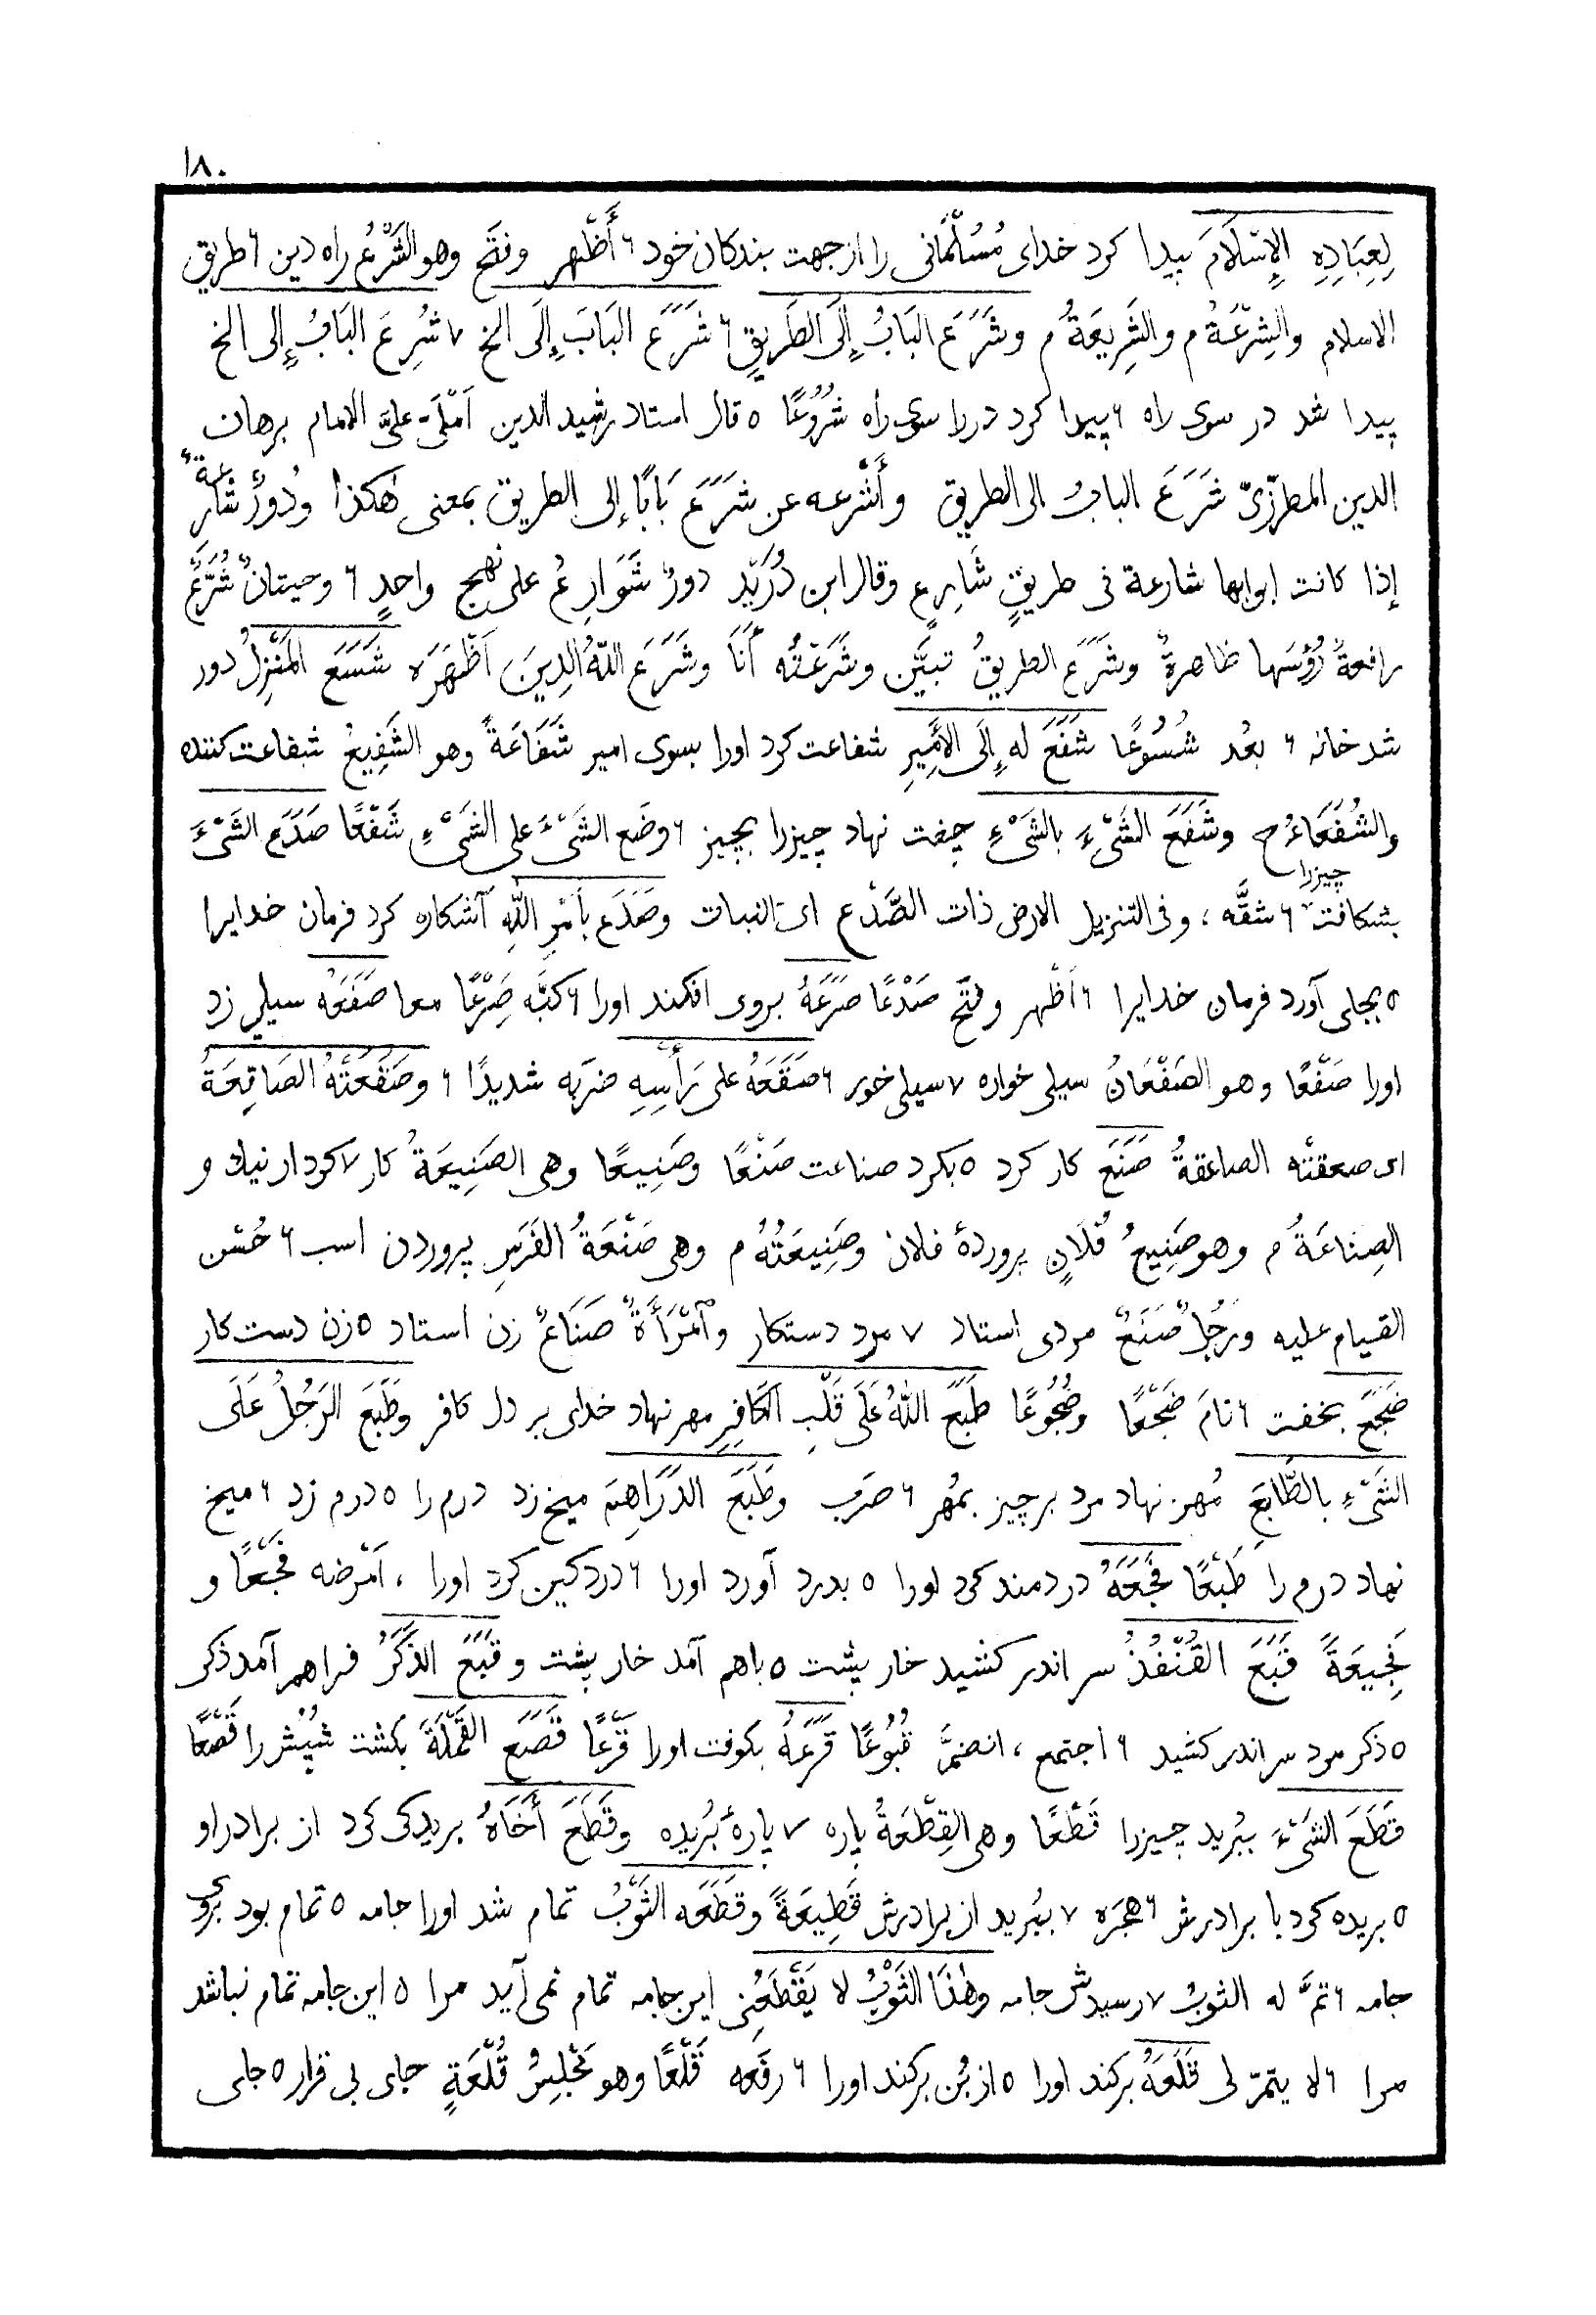 ١٨٠
لِعِبَادِهِ الإِسْلَامَ پیدا کرد خدای مُسُلْمَانی را از جهت بندکان خود ۶ أَظْهر وفَتَح وهو الشَّرْعُ راه دین ۶ طریق
الاسلام والشِرْعَةُ م والشَرِیعَةُ م وشَرَعَ البَابُ إِلَى الطَرِیقِ ۶ شَرَعَ البَابَ إِلَى الخ ٧ شُرِعَ البَابُ إِلى الخ
پیدا شد در سوی راه ۶ پیدا کرد در را سوی راه شُرُوعًا ٥ قال استاد رشید الدین اَمْلَى عَلیَّ الامام برهان
الدین المطرّزیّ شَرَعَ البابُ الى الطریق وأَشْرعه عن شَرَعَ بَابًا إلى الطریق بمعنى هٰكذا ودُورٌ شَارِعَةٌ
إذا كانت ابوابها شارعة فى طریقٍ شَارِعٍ وقال ابن دُرَیْد دورٌ شَوَارِعُ على نهجٍ واحدٍ ۶ وحیتانٌ شُرَّعٌ
رافعةٌ رُؤسَها ظاهرةٌ وشَرَعَ الطریقُ تبیَّن وشَرَعْتُه أَنَا وشَرَعَ اللّٰهُ الدِینَ اَظْهَرَه شَسَعَ المَنْزِلُ دور
شد خانه ۶ بعُد شُسُوعًا شَفَعَ له إِلَى الأَمِیرِ شفاعت کرد اورا بسوی امیر شَفَاعَةً وهو الشَفِیعُ شفاعت کننده
والشُفَعَاءُ ج وشَفَعَ الشَیْءَ بالشَیْءِ جفت نهاد چیزرا بچیز ۶ وضَع الشَیْءَ على الشَیْءِ شَفْعًا صَدَعَ الشَیْءَ
بشکافت چیزرا ۶ شقَّه ، وفى التنزیل الارض ذات الصَّدْع اى النبات وصَدَع بأَمْرِ اللّٰهِ آشکاره کرد فرمان خدایرا
٥ بجای آورد فرمان خدایرا ۶ اَظْهر وفتَح صَدْعًا صَرَعَهُ بروی افکند اورا ۶ كَبَّه صَرْعًا معا صَفَعَه سیلی زد
اورا صَفْعًا وهو الصَفْعَانُ سیلی خواره ٧ سیلی خور ۶ صَقَعَهُ على رَأْسِهِ ضربَه شدیدًا ۶ وصَقَعَتْهُ الصَاقِعَةُ
اى صعقتْه الصاعقةُ صَنَعَ کار کرد ٥ بکرد صناعت صَنْعًا وصَنِیعًا وهى الصَنِیعَةُ کار ٧ کردار نیک و
الصِنَاعَةُ م وهو صَنِیعُ فُلَانٍ پروردۀ فلان وصَنِیعَتُهُ م وهى صَنْعَةُ الفَرَسِ پروردن اسب ۶ حُسْن
القیام علیه ورَجُلٌ صَنَعٌ مردی استاد ٧ مرد دستکار واَمْرَأَةٌ صَنَاعٌ زن استاد ٥ زن دست کار
ضَجَعَ بخفت ۶ نامَ ضَجْعًا وضُجُوعًا طَبَعَ اللّٰهُ عَلَى قَلْبِ الكَافِرِ مهر نهاد خدای بر دل کافر وطَبَعَ الرَجُلُ عَلَى
الشَیْءِ بالطَّابَعِ مُهر نهاد مرد بر چیز بمُهر ۶ ضرَب وطَبَعَ الدَرَاهِمَ میخ زد درم را ٥ درم زد ۶ میخ
نهاد درم را طَبْعًا فَجَعَهُ دردمند کرد اورا ٥ بدرد آورد اورا ۶ دردکین کرد اورا ، اَمْرَضه فَجْعًا و
فَجِیعَةً قَبَعَ القُنْفُذُ سر اندر کشید خار پشت ٥ باهم آمد خار پشت وقَبَعَ الذَكَرُ فراهم آمد ذکر
٥ ذکر مرد سر اندر کشید ۶ اجتمع ، انضمَّ قُبُوعًا قَرَعَهُ بکوفت اورا قَرْعًا قَصَعَ القَمْلَةَ بکشت شپُش را قَصْعًا
قَطَعَ الشَیْءَ ببُرید چیزرا قَطْعًا وهى القِطْعَةُ پاره ٧ پارۀ بُریده وقَطَعَ أَخَاهُ بریدکی کرد از برادر او
٥ بریده کرد با برادرش ۶ هجَرَه ٧ ببُرید از برادرش قَطِیعَةً وقَطَعَه الثَوْبُ تمام شد اورا جامه ٥ تمام بود بروی
جامه ۶ تمَّ له الثوبُ ٧ رسیدش جامه وهٰذَا الثَوْبُ لا یَقْطَعُنِى این جامه تمام نمی آید مرا ٥ این جامه تمام نباشد
مرا ۶ لا یتمّ لى قَلَعَهُ برکند اورا ٥ از بُن برکند اورا ۶ رفَعه قَلْعًا وهو مَجْلِسُ قُلْعَةٍ جای بی قرار ٥ جای